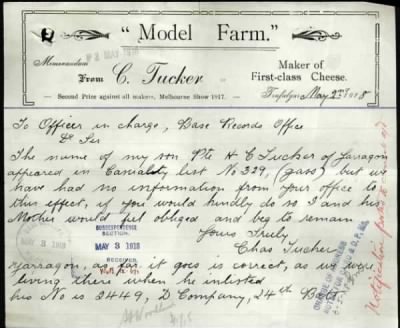 "Model Farm."
3 MAY 1918
Memorandum
From C. Tucker
Maker of
First-class Cheese.
Second Prize against all makers, Melbourne Show 1917.
Trafalgar May 2nd 1918
To Officer in charge, Base Records Office
Dr Sir
The name of my son Pte H C Tucker of Yarragon
appeared in Casualty list No 329, (gass) but we
have had no information from your office to
this effect, if you would kindly do so I and his
Mother would ful obliged and beg to remain
Yours Truly,
Chas Tucker
Yarragon, as far it goes is correct, as we were
living there when he enlisted
his No is 3449, D Company, 24th Batt
CORRESPONDENCE
SECTION.
MAY 3 1918
MAY 3 1918
Notification